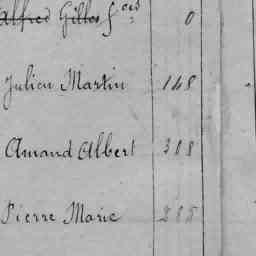 Alfred Gilles fcis 0
Julien Martin 148
Amand Albert 388
Pierre Marie 285